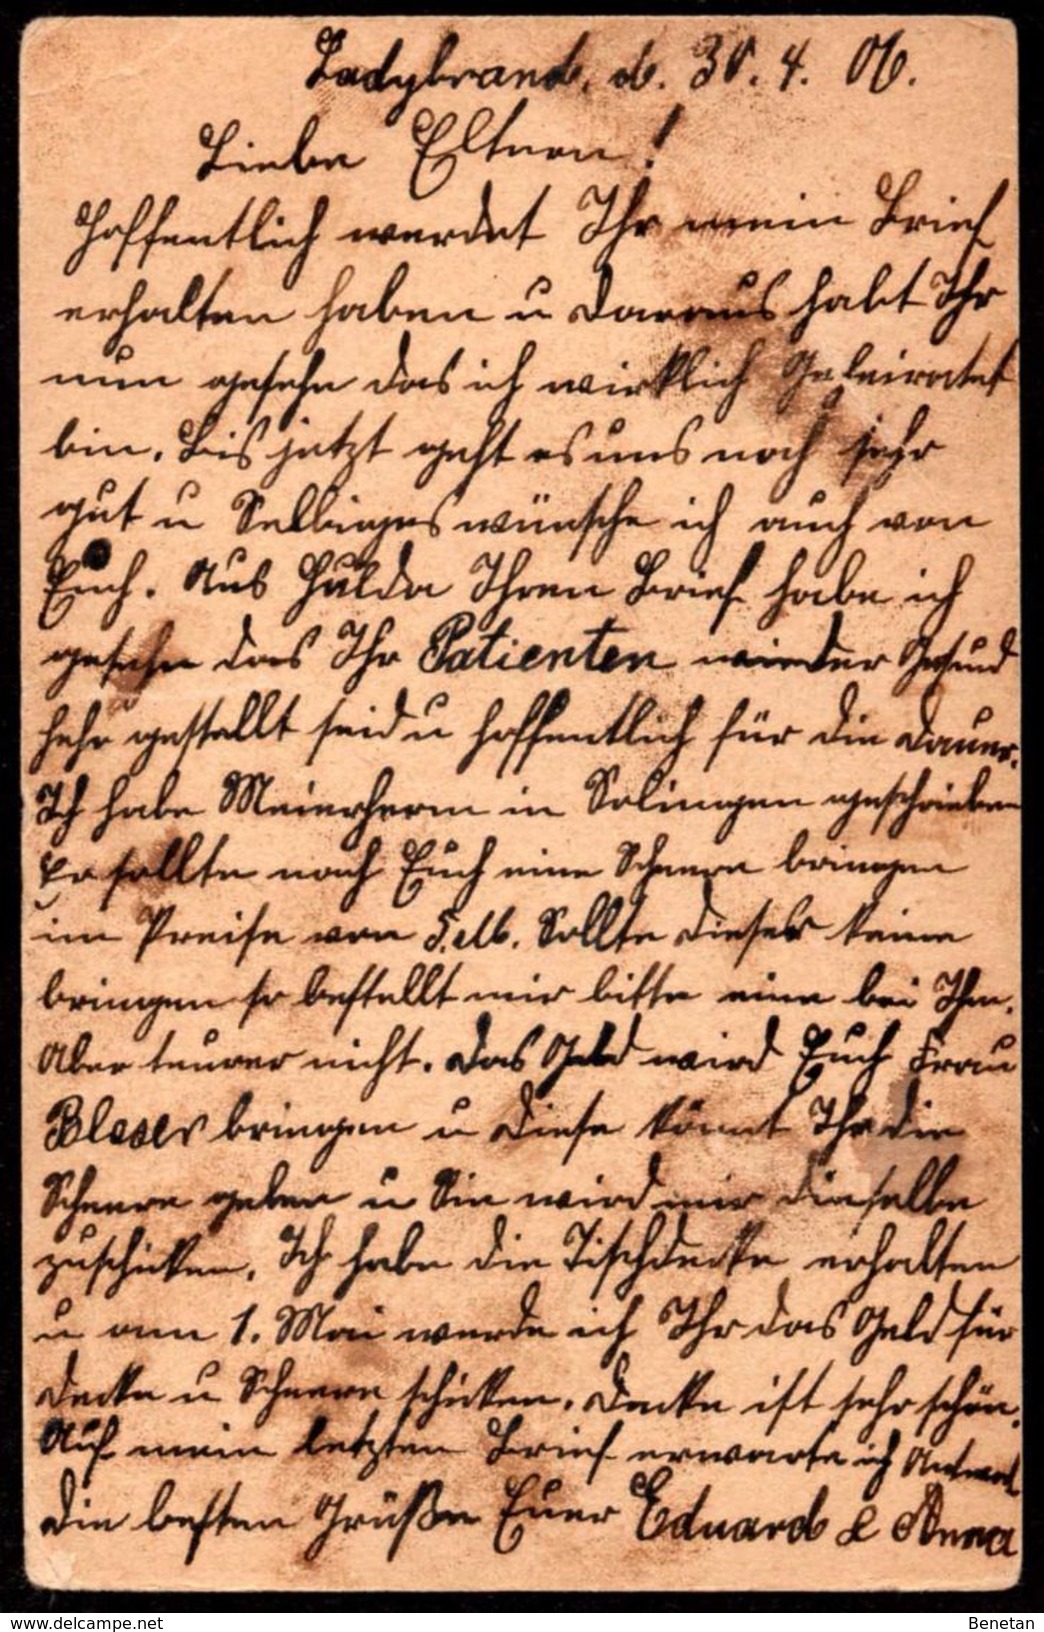 Ladybrand, d. 30. 4. 06.
Liebe Eltern!
Hoffentlich werdet Ihr mein Brief
erhalten haben u daraus habt Ihr
nun gesehn das ich wirklich Geheiratet
bin. Bis jetzt geht es uns noch sehr
gut u Selbiges wünsche ich auch von
Euch. Aus Hulda Ihren Brief habe ich
gesehn das Ihr Patienten wieder Gesund
hergestellt seid u hoffentlich für die Dauer.
Ich habe Meierherm in Solingen geschrieben
Er sollte nach Euch eine Scheere bringen
im Preise von 5. M. Sollte dieser keine
bringen so bestellt mir bitte eine bei Ihm.
Aber teurer nicht. Das Geld wird Euch Frau
Bleser bringen u diese könnt Ihr die
Scheere geben u Sie wird mir dieselbe
zuschicken. Ich habe die Tischdecke erhalten
u am 1. Mai werde ich Ihr das Geld für
Decke u Scheere schicken. Decke ist sehr schön.
Auf mein letzten Brief erwarte ich Antwort
Die besten Grüße Euer Eduard & Anna
http://www.delcampe.net
Benetan